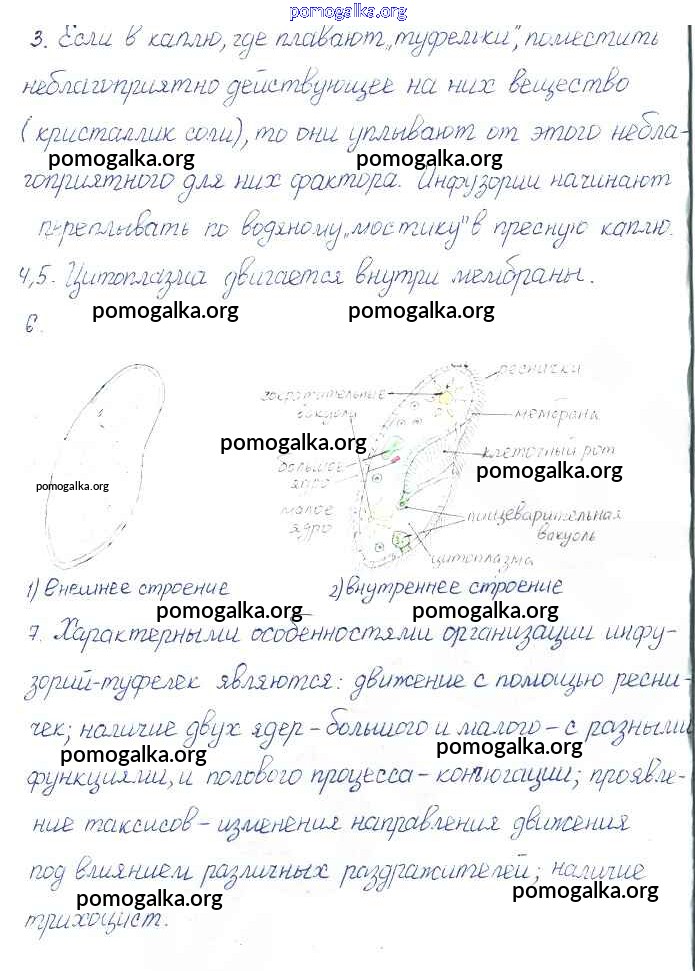 pomogalka.org
3. Если в каплю, где плавают „туфельки", поместить
неблагоприятно действующее на них вещество
(кристаллик соли), то они уплывают от этого небла-
pomogalka.org pomogalka.org
гоприятного для них фактора. Инфузории начинают
переплывать по водяному „мостику" в пресную каплю.
4,5. Цитоплазма двигается внутри мембраны.
pomogalka.org pomogalka.org
6.
реснички
сократительные
вакуоли
мембрана
pomogalka.org
клеточный рот
большое
ядро
pomogalka.org
pomogalka.org
малое
ядро
пищеварительная
вакуоль
цитоплазма
1) Внешнее строение 2) внутреннее строение
pomogalka.org pomogalka.org
7. Характерными особенностями организации инфу-
зорий-туфелек являются: движение с помощью ресни-
чек; наличие двух ядер - большого и малого - с разными
pomogalka.org pomogalka.org
функциями, и полового процесса - конъюгации; проявле-
ние таксисов - изменения направления движения
под влиянием различных раздражителей; наличие
pomogalka.org pomogalka.org
трихоцист.